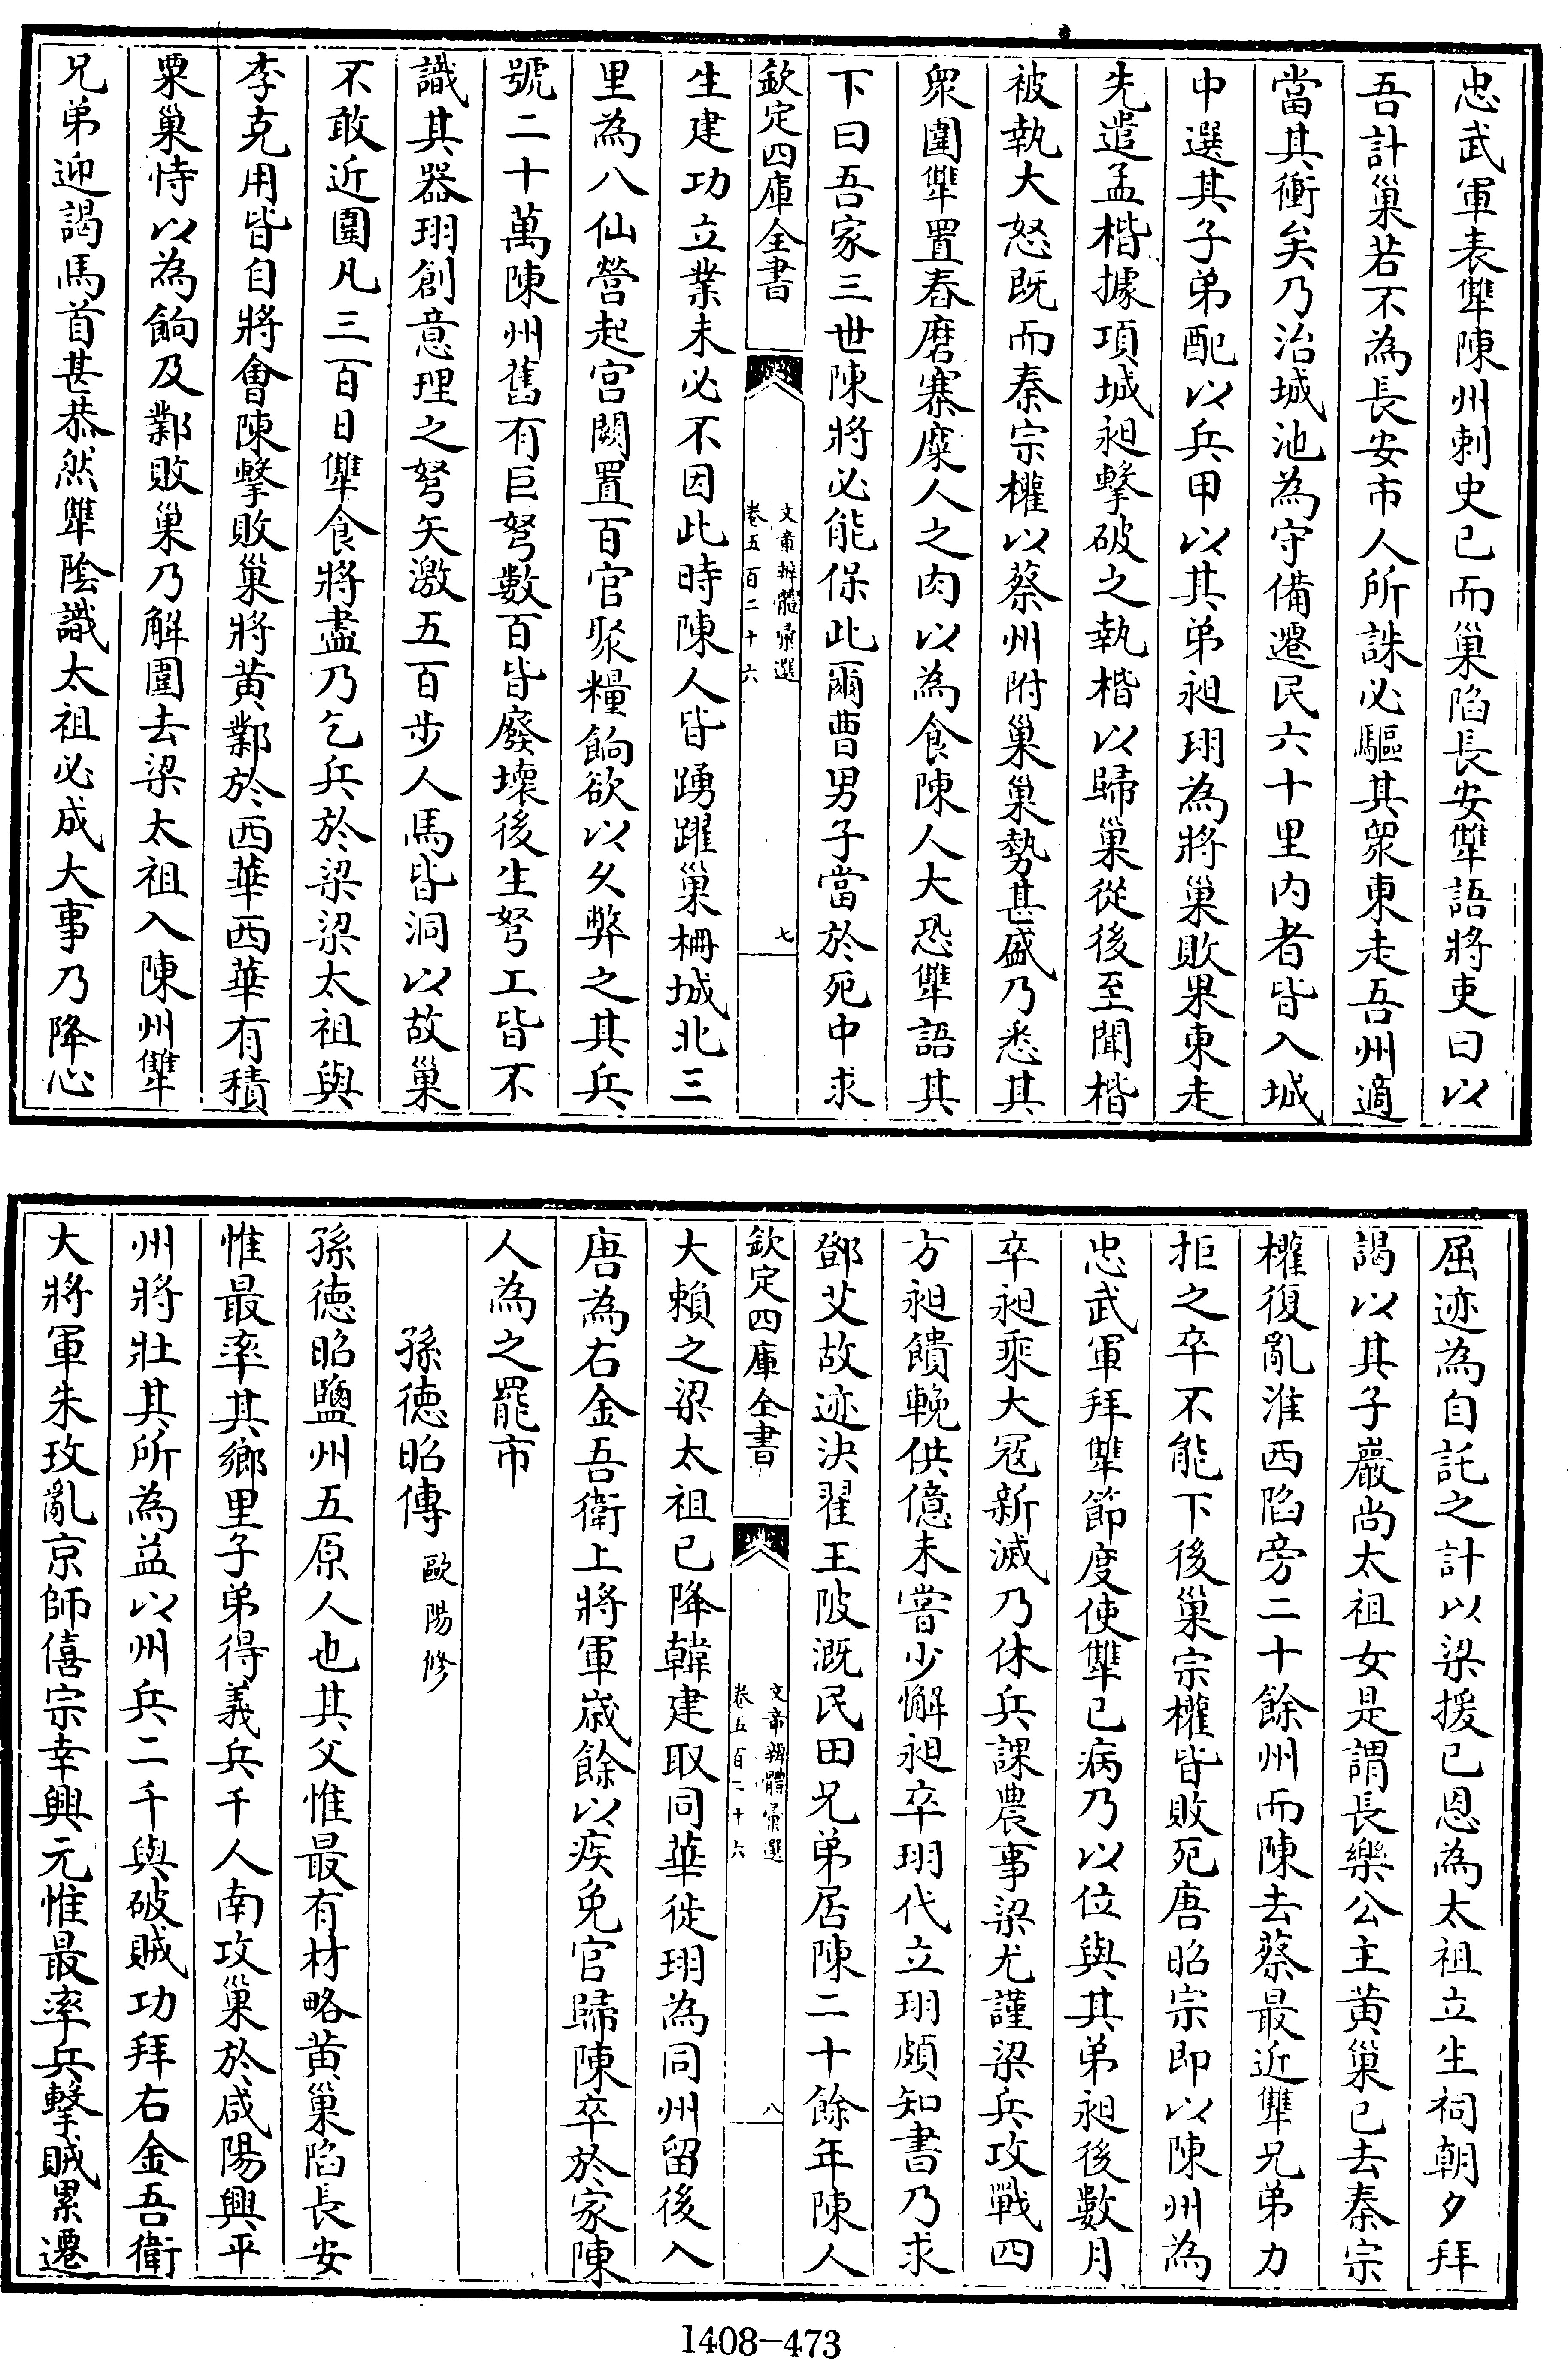 忠武軍表犨陳州刺史已而巢陷長安犨語將吏曰以
吾計巢若不為長安市人所誅必驅其衆東走吾州適
當其衝矣乃治城池為守備遷民六十里内者皆入城
中選其子弟配以兵甲以其弟昶珝為將巢敗果東走
先遣孟楷據項城昶擊破之執楷以歸巢從後至聞楷
被執大怒既而秦宗權以蔡州附巢巢勢甚盛乃悉其
衆圍犨置舂磨寨糜人之肉以為食陳人大恐犨語其
下曰吾家三世陳將必能保此爾曹男子當於死中求
欽定四庫全書
文章辨體彙選
卷五百二十六
七
生建功立業未必不因此時陳人皆踴躍巢柵城北三
里為八仙營起宫闕置百官聚糧餉欲以久弊之其兵
號二十萬陳州舊有巨弩數百皆廢壞後生弩工皆不
識其器珝創意理之弩矢激五百步人馬皆洞以故巢
不敢近圍凡三百日犨食將盡乃乞兵於梁梁太祖與
李克用皆自將會陳擊敗巢將黄鄴於西華西華有積
粟巢恃以為餉及鄴敗巢乃解圍去梁太祖入陳州犨
兄弟迎謁馬首甚恭然犨陰識太祖必成大事乃降心
屈迹為自託之計以梁援已恩為太祖立生祠朝夕拜
謁以其子巖尚太祖女是謂長樂公主黄巢已去秦宗
權復亂淮西陷旁二十餘州而陳去蔡最近犨兄弟力
拒之卒不能下後巢宗權皆敗死唐昭宗即以陳州為
忠武軍拜犨節度使犨已病乃以位與其弟昶後數月
卒昶乘大冦新滅乃休兵課農事梁尤謹梁兵攻戰四
方昶饋輓供億未嘗少懈昶卒珝代立珝頗知書乃求
鄧艾故迹決翟王陂溉民田兄弟居陳二十餘年陳人
欽定四庫全書
文章辨體彙選
卷五百二十六
八
大賴之梁太祖已降韓建取同華徙珝為同州留後入
唐為右金吾衛上將軍歳餘以疾免官歸陳卒於家陳
人為之罷市
孫徳昭傳 歐陽修
孫徳昭鹽州五原人也其父惟最有材略黄巢陷長安
惟最率其鄉里子弟得義兵千人南攻巢於咸陽興平
州將壯其所為益以州兵二千與破賊功拜右金吾衛
大將軍朱玫亂京師僖宗幸興元惟最率兵擊賊累遷
1408-473